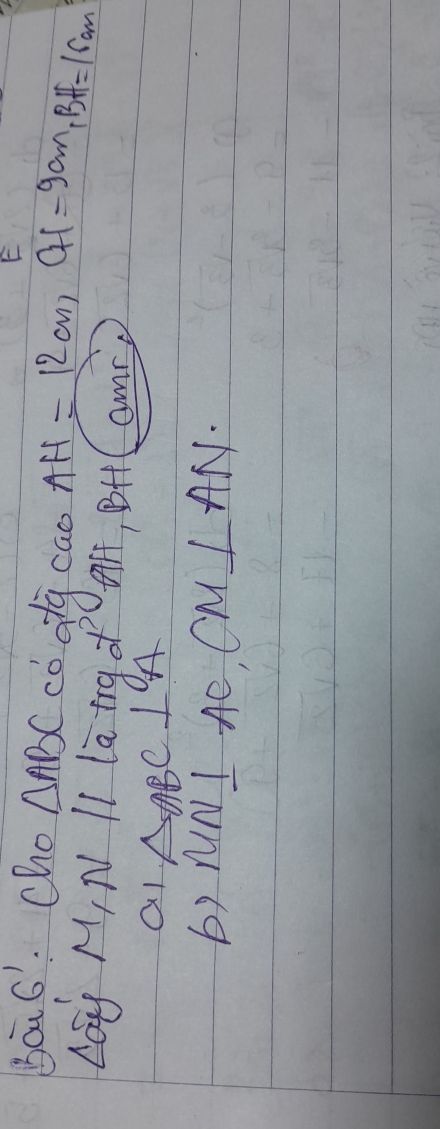 Bài 6. Cho ΔABC có đg cao AH = 12cm, CH = 9cm, BH = 16cm
Lấy M, N // là trg đ' AH, BH cmr.
a, ΔABC ⊥ A
b, MN ⊥ AC, CM ⊥ AN.